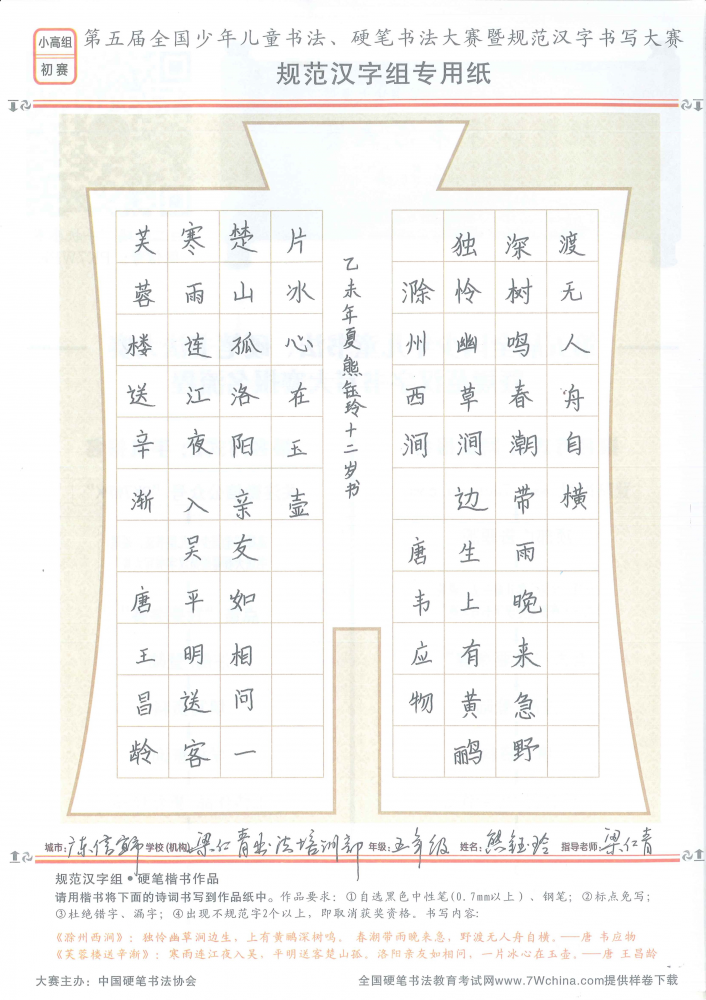 小高组
初赛
第五届全国少年儿童书法、硬笔书法大赛暨规范汉字书写大赛
规范汉字组专用纸
滁州西涧唐韦应物
独怜幽草涧边生上有黄鹂
深树鸣春潮带雨晚来急野
渡无人舟自横
芙蓉楼送辛渐唐王昌龄
寒雨连江夜入吴平明送客
楚山孤洛阳亲友如相问一
片冰心在玉壶
乙未年夏熊钰玲十二岁书
城市: 学校(机构):梁仁青书法培训部 年级:五年级 姓名:熊钰玲 指导老师:梁仁青
规范汉字组●硬笔楷书作品
请用楷书将下面的诗词书写到作品纸中。作品要求：①自选黑色中性笔(0.7mm以上)、钢笔；②标点免写；
③杜绝错字、漏字；④出现不规范字2个以上，即取消获奖资格。书写内容:
《滁州西涧》：独怜幽草涧边生，上有黄鹂深树鸣。 春潮带雨晚来急，野渡无人舟自横。——唐 韦应物
《芙蓉楼送辛渐》：寒雨连江夜入吴，平明送客楚山孤。洛阳亲友如相问，一片冰心在玉壶。——唐 王昌龄
大赛主办：中国硬笔书法协会
全国硬笔书法教育考试网www.7Wchina.com提供样卷下载